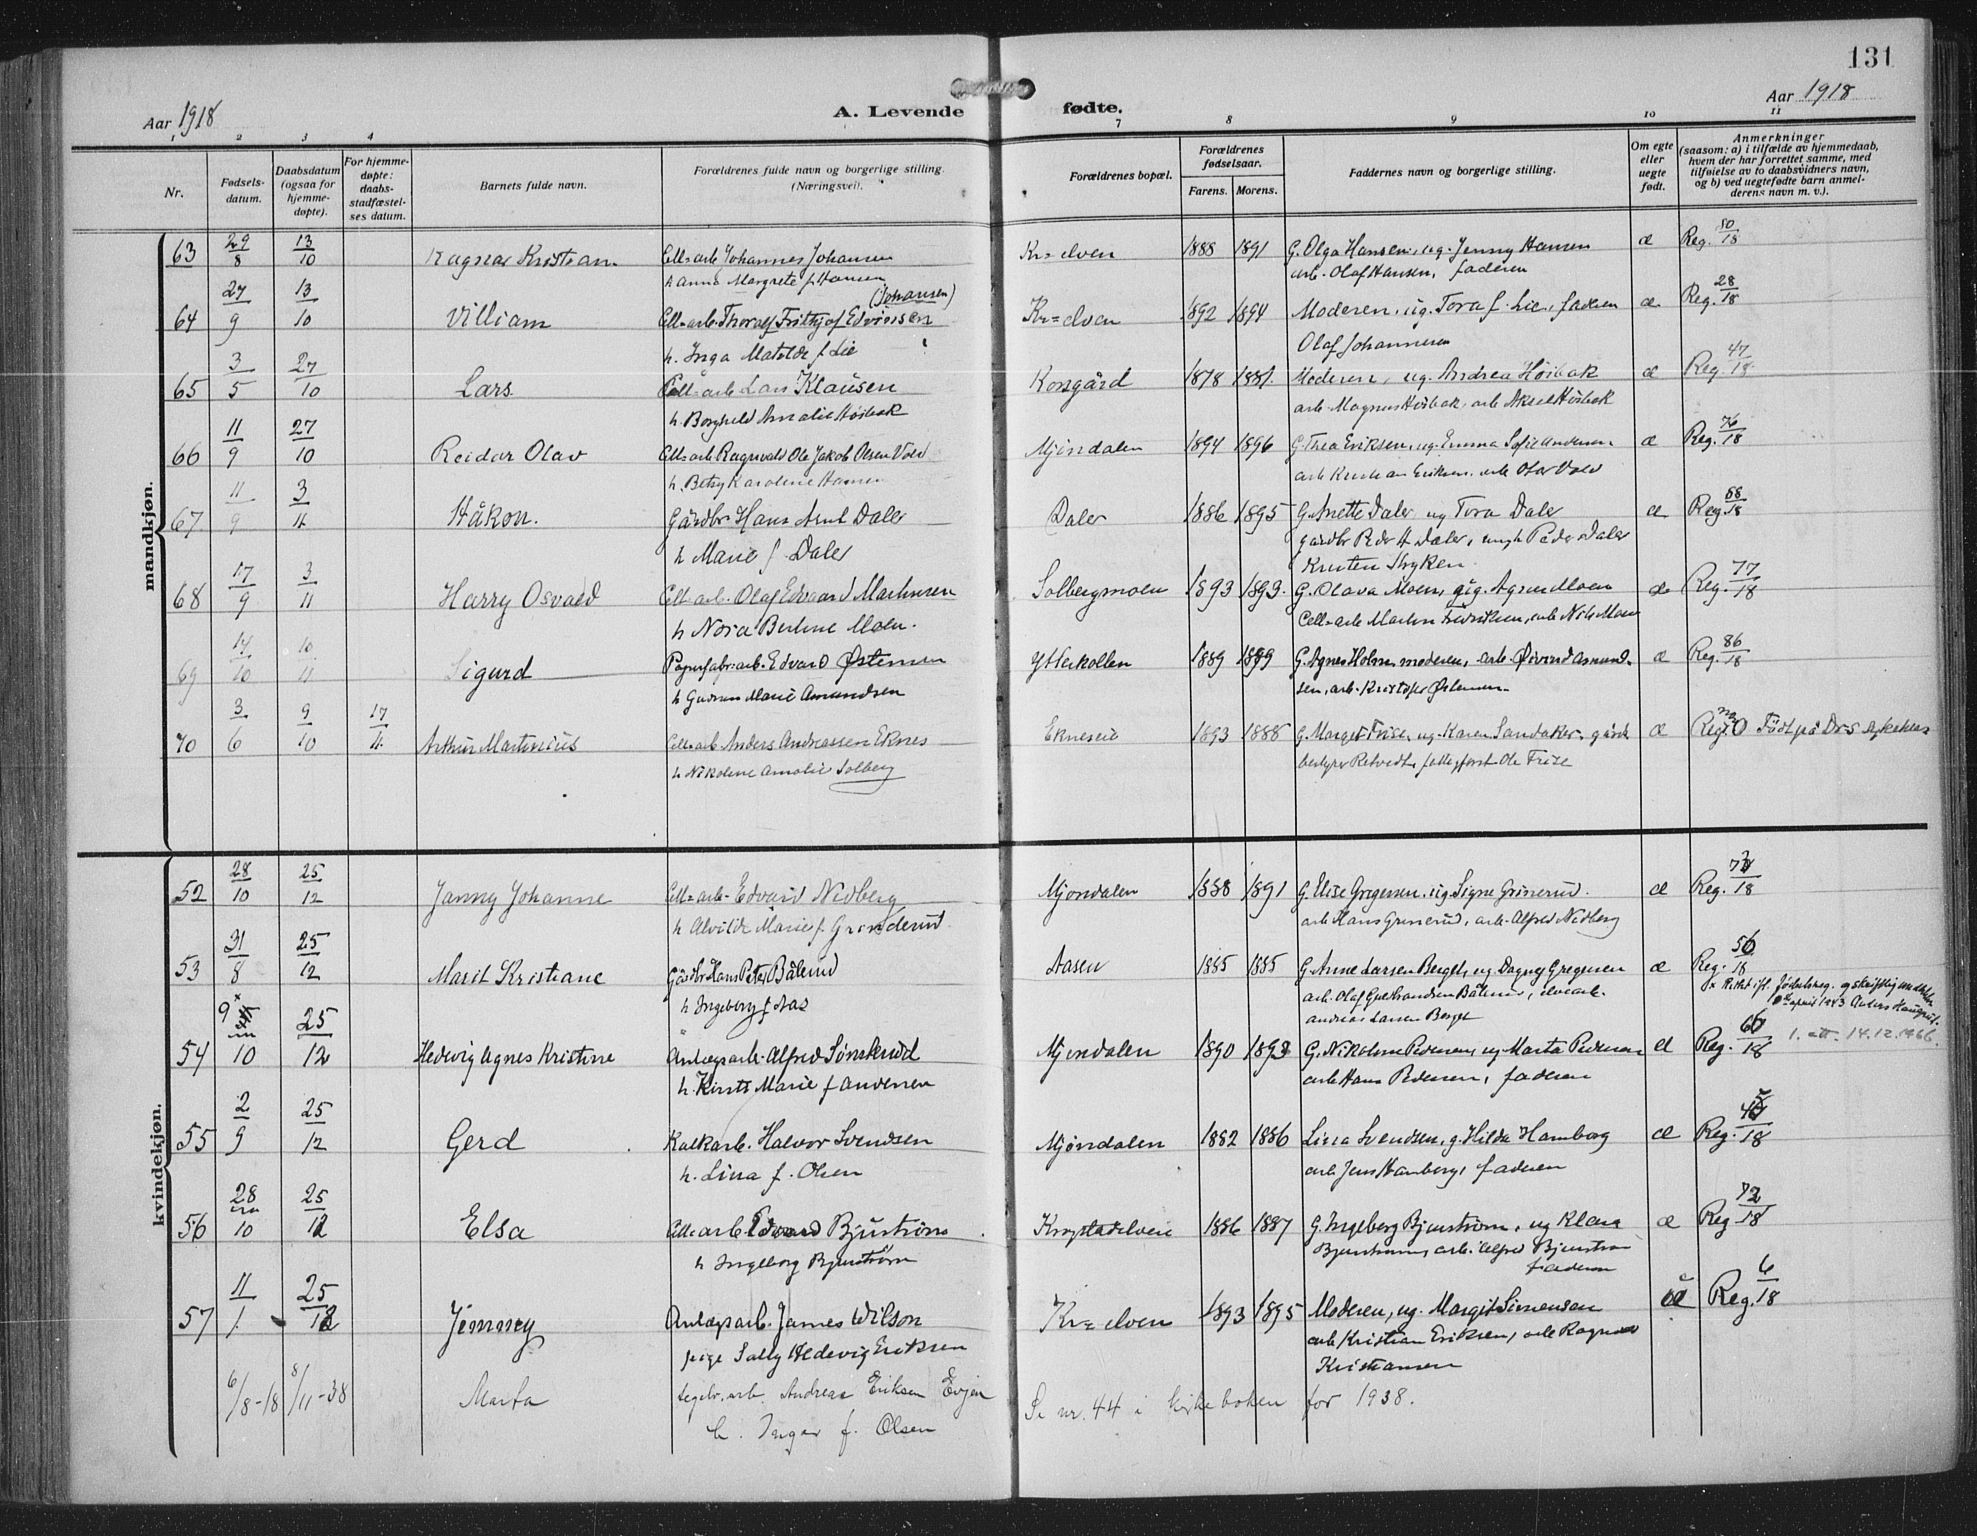 131
Aar 1918
A. Levende fødte.
Aar 1918
1 2 3 4 7 8 9 10 11
Nr.
Fødsels-
datum.
Daabsdatum
(ogsaa for
hjemme-
døpte).
For hjemme-
døpte:
daabs-
stadfæstel-
ses datum.
Barnets fulde navn.
Forældrenes fulde navn og borgerlige stilling.
(Næringsvei).
Forældrenes bopæl.
Forældrenes
fødselsaar.
Farens. Morens.
Faddernes navn og borgerlige stilling.
Om egte
eller
uegte
født.
Anmerkninger
(saasom: a) i tilfælde av hjemmedaab,
hvem der har forrettet samme, med
tilføielse av to daabsvidners navn,
og b) ved uegtefødte barn anmel-
derens navn m. v.).
mandkjøn.
63 29/8 13/10 Ragnar Kristian Cell=arb Johannes Johansen Kr=elven 1888 1891 G. Olga Hansen, ug. Jenny Hansen æ Reg. 80/18
h Anna Margrete f Hansen arb. Olaf Hansen, faderen
(Johansen)
64 27/9 13/10 Villiam Cell=arb. Thoralf Frithjof Edvinsen Kr=elven 1892 1894 Moderen, ug. Tora f. Lie, faderen æ Reg. 28/18
h. Inga Matilde f Lie Olaf Johannesen
65 3/5 27/10 Lars Cell=arb Lars Klausen Korsgård 1878 1881 Moderen, ug. Andrea Höibak æ Reg. 47/18
h. Borghild Amalie Høibak arb. Magnus Høibak, arb Aksel Høibak
66 11/9 27/10 Reidar Olav Cell=arb Ragnvald Ole Jakob Olsen Vold Mjöndalen 1894 1896 G. Thea Eriksen, ug. Emma Sofie Andersen æ Reg. 76/18
h. Betsy Karoline Hansen arb Kristian Eriksen, arb Olav Vold
67 11/9 3/11 Håkon. Gårdbr Hans Arnt Daler Daler 1886 1895 G. Anette Daler, ug Tora Daler æ Reg. 68/18
h Marie f Daler gårdbr Peder H Daler, ungk Peder Daler
Kristen Stryken
68 17/9 3/11 Harry Osvald Cell=arb. Olaf Edvard Martinsen Solbergmoen 1893 1893 G. Olava Moen, pig. Agnes Moen æ Reg. 77/18
h Nora Berline Moen. Cell=arb Martin Fredriksen, arb Nils Moen
69 14/10 10/11 Sigurd Papirfabr=arb. Edvard Østensen Ytterkollen 1889 1889 G. Agnes Holm, moderen, arb. Øivind Amund- æ Reg. 86/18
h Gudrun Marie Amundsen sen, arb. Kristofer Østensen.
70 3/6 9/10 17/11 Arthur Martinius Cell=arb Anders Andreassen Eknes Ekneseie 1893 1888 G. Margit Frise, ug. Karen Sandaker, gårds æ Reg. 0 Født på Dr=s sykehus
h Nikoline Amalie Solberg bestyrer Retvedt, fattigforst. Ole Frise
kvindekjøn.
52 28/10 25/12 Janny Johanne Cell=arb. Edvard Nedberg Mjøndalen 1888 1891 G. Elise Gregersen, ug Signe Grinerud. æ Reg. 73/18
h Alvilde Marie f. Grinderud arb Hans Grinerud, arb. Alfred Nedberg
53 31/8 25/12 Marit Kristiane Gårdbr Hans Peter Bålerud Aasen 1885 1885 G. Anne Larsen Berget, ug Dagny Gregersen æ Reg. 56/18
h Ingeborg f Aas arb. Olaf Gulbrandsen Bålerud, elvearb.
Andreas Larsen Berget
x Rettet ifl. fødselsreg. og skriftlig meddelelse
april 1943 Anders Haugerud.
54 9/10 25/12 Hedevig Agnes Kristine Anlægsarb. Alfred Sønsterud Mjøndalen 1890 1892 G. Nikoline Pedersen, ug Marta Pedersen æ Reg. 66/18 1. att. 14.12.1966.
h. Kirsti Marie f Andersen arb Hans Pedersen, faderen
55 2/9 25/12 Gerd Kalkarb. Halvor Svendsen Mjøndalen 1882 1886 Lina Svendsen, g. Hilda Hamborg æ Reg. 45/18
h. Lina f. Olsen arb Jens Hamborg, faderen
56 28/10 25/12 Elsa Cell=arb. Edvard Bjurstrøm Krogstadelven 1886 1887 G. Ingeborg Bjurstrøm, ug Klara æ Reg. 72/18
h Ingeborg Bjurstrøm Bjurstrøm, arb. Alfred Bjurstrøm
faderen
57 11/1 25/12 Jemmey Anlægsarb. James Wilson Kr=elven 1893 1895 Moderen, ug. Margit Simensen ue Reg. 6/18
pige Sally Hedevig Eriksen arb Kristian Eriksen, arb Ragnar
Kristiansen
6/8-18 8/11-38 Marta teglv.arb. Andreas Eriksen Evjen Se nr. 44 i kirkeboken for 1938.
h. Inger f. Olsen